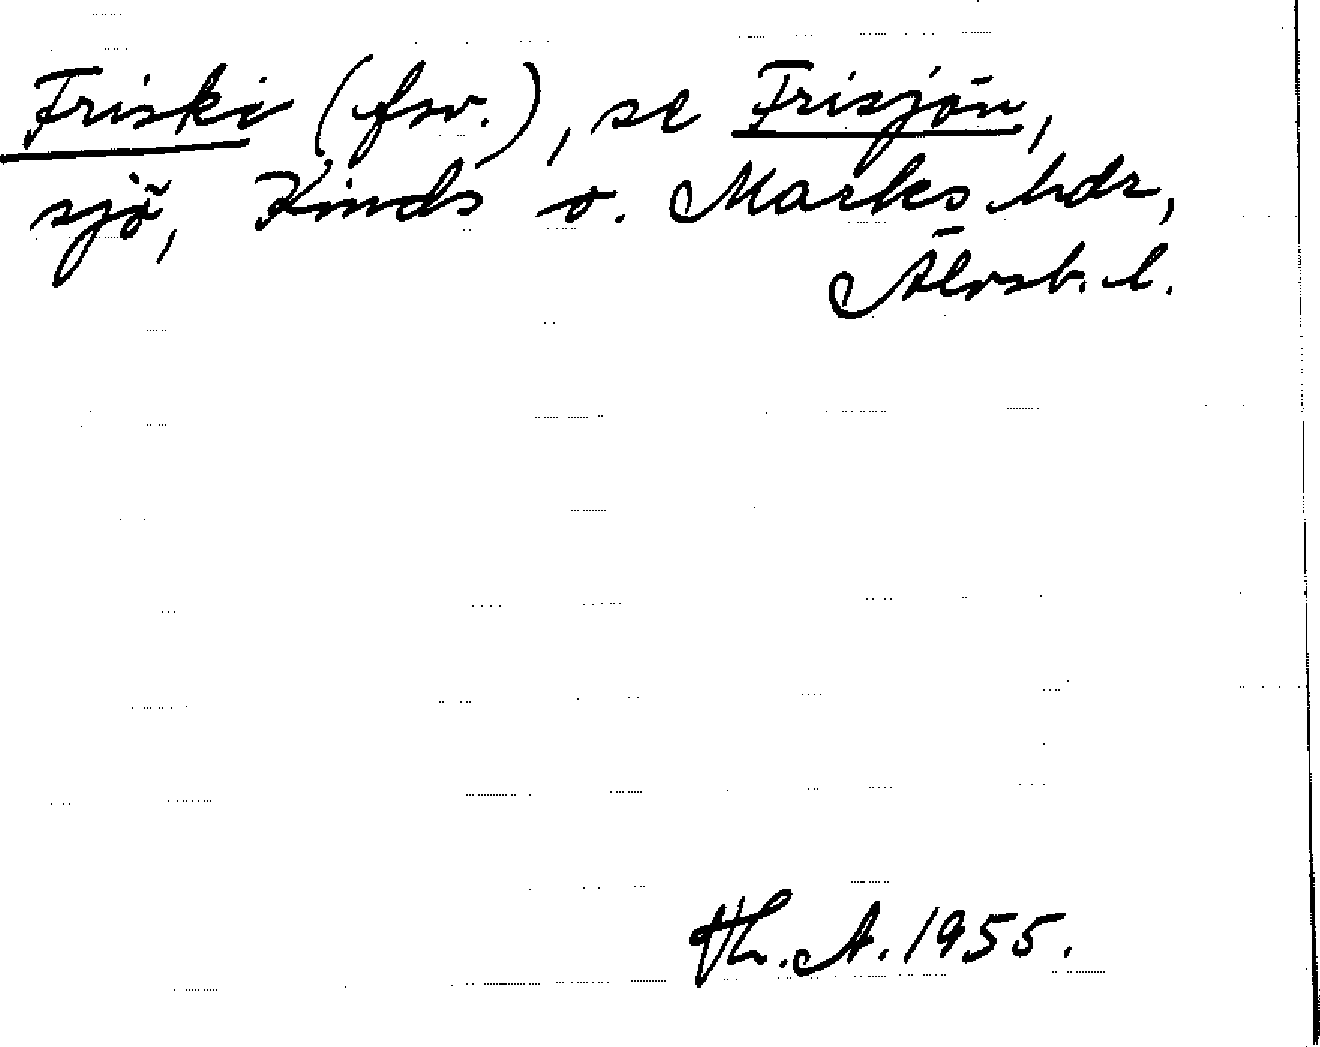 Friski (fsv.), se Frisjön,
sjö, Kinds o. Marks hdr,
Älvsb. l.
Th. A. 1955.